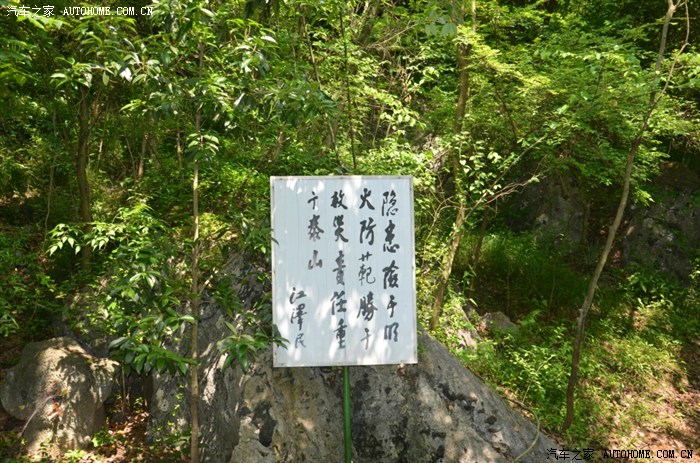 汽车之家 AUTOHOME.COM.CN
隐患險于明
火防範勝于
救災責任重
于泰山
江澤民
汽车之家 AUTOHOME.COM.CN